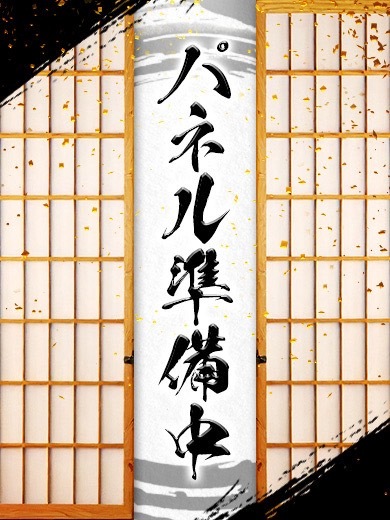 パネル準備中